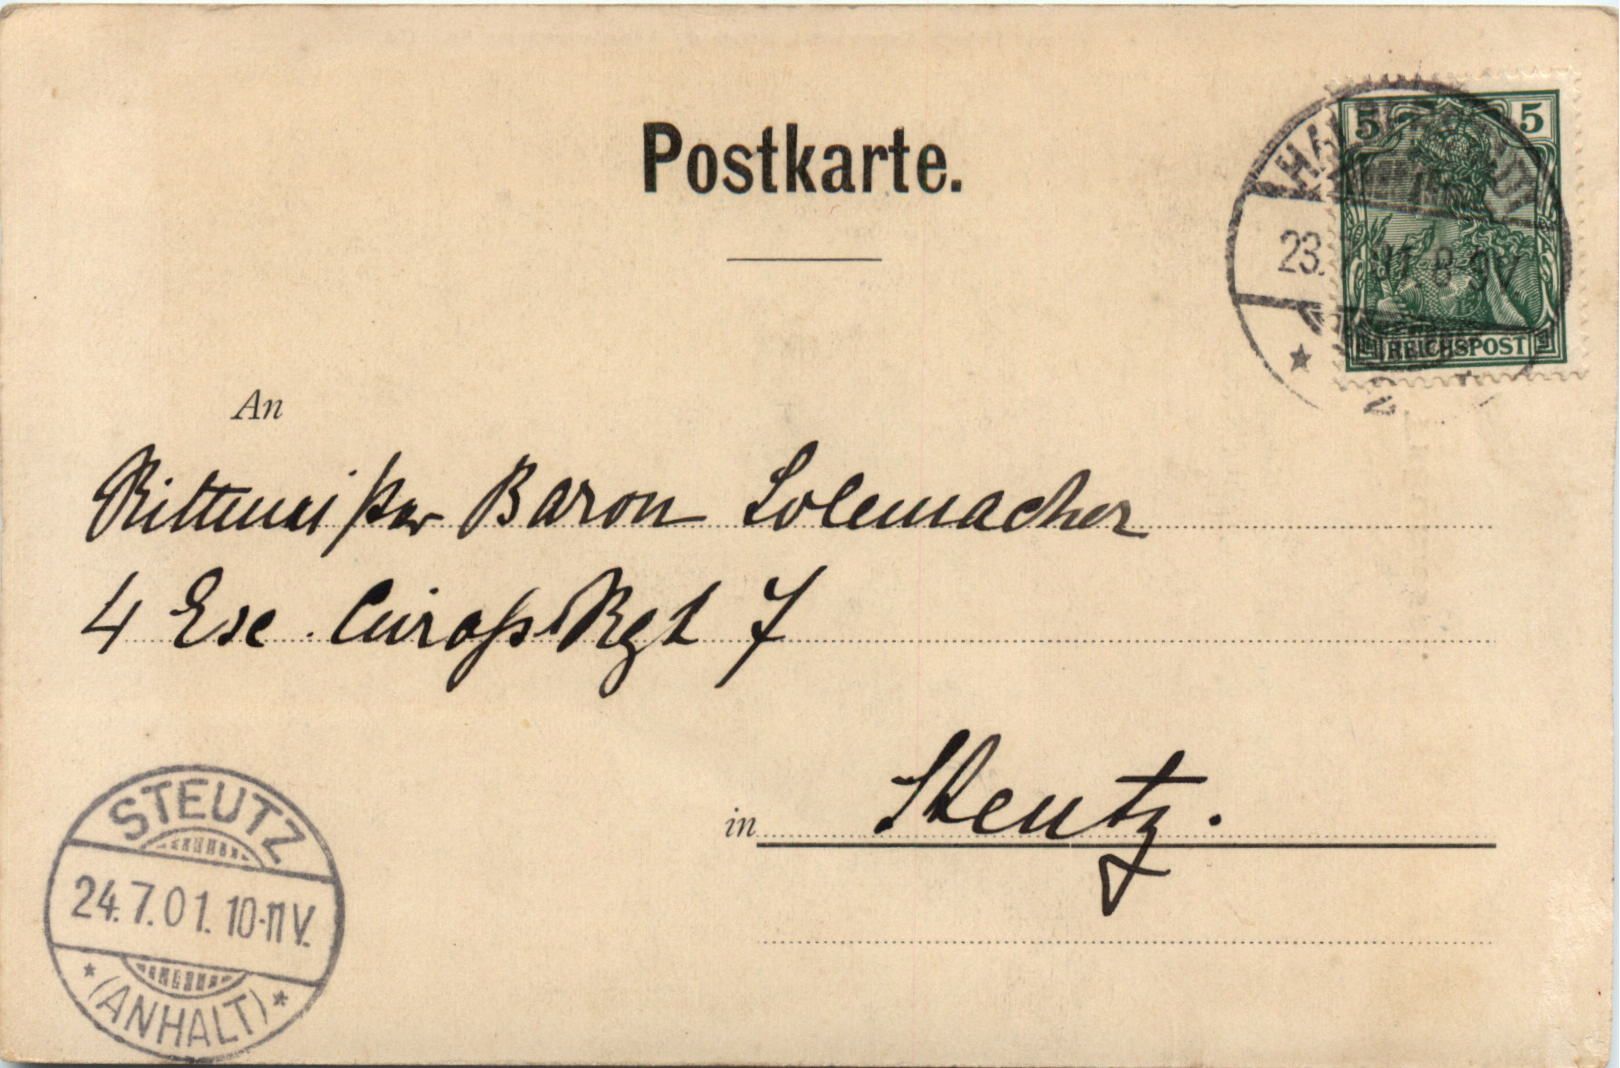 Postkarte.
5 5
23. 8-9V
REICHSPOST
An
Rittmeister Baron Solemacher
4 Esc. Cüraß Rgt 7
in Steutz.
STEUTZ
24.7.01. 10-11V.
* (ANHALT) *